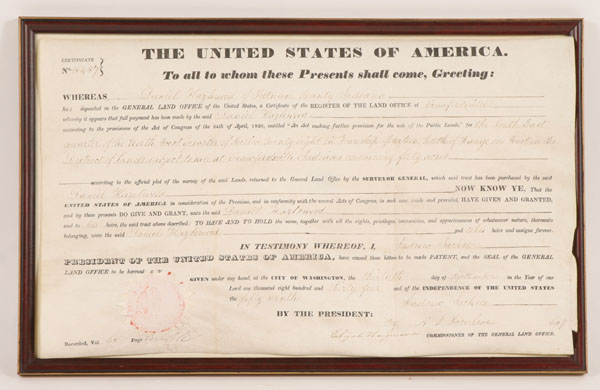 THE UNITED STATES OF AMERICA.
CERTIFICATE
No.
To all to whom these Presents shall come, Greeting:
WHEREAS Daniel Hazlewood of Putnam County Indiana
ha deposited in the GENERAL LAND OFFICE of the United States, a Certificate of the REGISTER OF THE LAND OFFICE at Crawfordsville
whereby it appears that full payment has been made by the said Daniel Hazlewood
according to the provisions of the Act of Congress of the 24th of April, 1820, entitled "An Act making further provision for the sale of the Public Lands," for the South East
quarter of the North East quarter of Section twenty eight in Township North of Range in the
District of Lands subject to sale at Crawfordsville Indiana containing forty acres
according to the official plat of the survey of the said Lands, returned to the General Land Office by the SURVEYOR GENERAL, which said tract has been purchased by the said
Daniel Hazlewood NOW KNOW YE, That the
UNITED STATES OF AMERICA, in consideration of the Premises, and in conformity with the several Acts of Congress, in such case made and provided, HAVE GIVEN AND GRANTED,
and by these presents DO GIVE AND GRANT, unto the said Daniel Hazlewood
and to his heirs, the said tract above described: TO HAVE AND TO HOLD the same, together with all the rights, privileges, immunities, and appurtenances of whatsoever nature, thereunto
belonging, unto the said Daniel Hazlewood and to his heirs and assigns forever.
IN TESTIMONY WHEREOF, I, Andrew Jackson
PRESIDENT OF THE UNITED STATES OF AMERICA, have caused these Letters to be made PATENT, and the SEAL of the GENERAL
LAND OFFICE to be hereunto
GIVEN under my hand, at the CITY OF WASHINGTON, the day of in the Year of our
Lord one thousand eight hundred and thirty four and of the INDEPENDENCE OF THE UNITED STATES
the fifty ninth Andrew Jackson
BY THE PRESIDENT:
By A. J. Donelson
COMMISSIONER OF THE GENERAL LAND OFFICE.
Recorded, Vol. Page